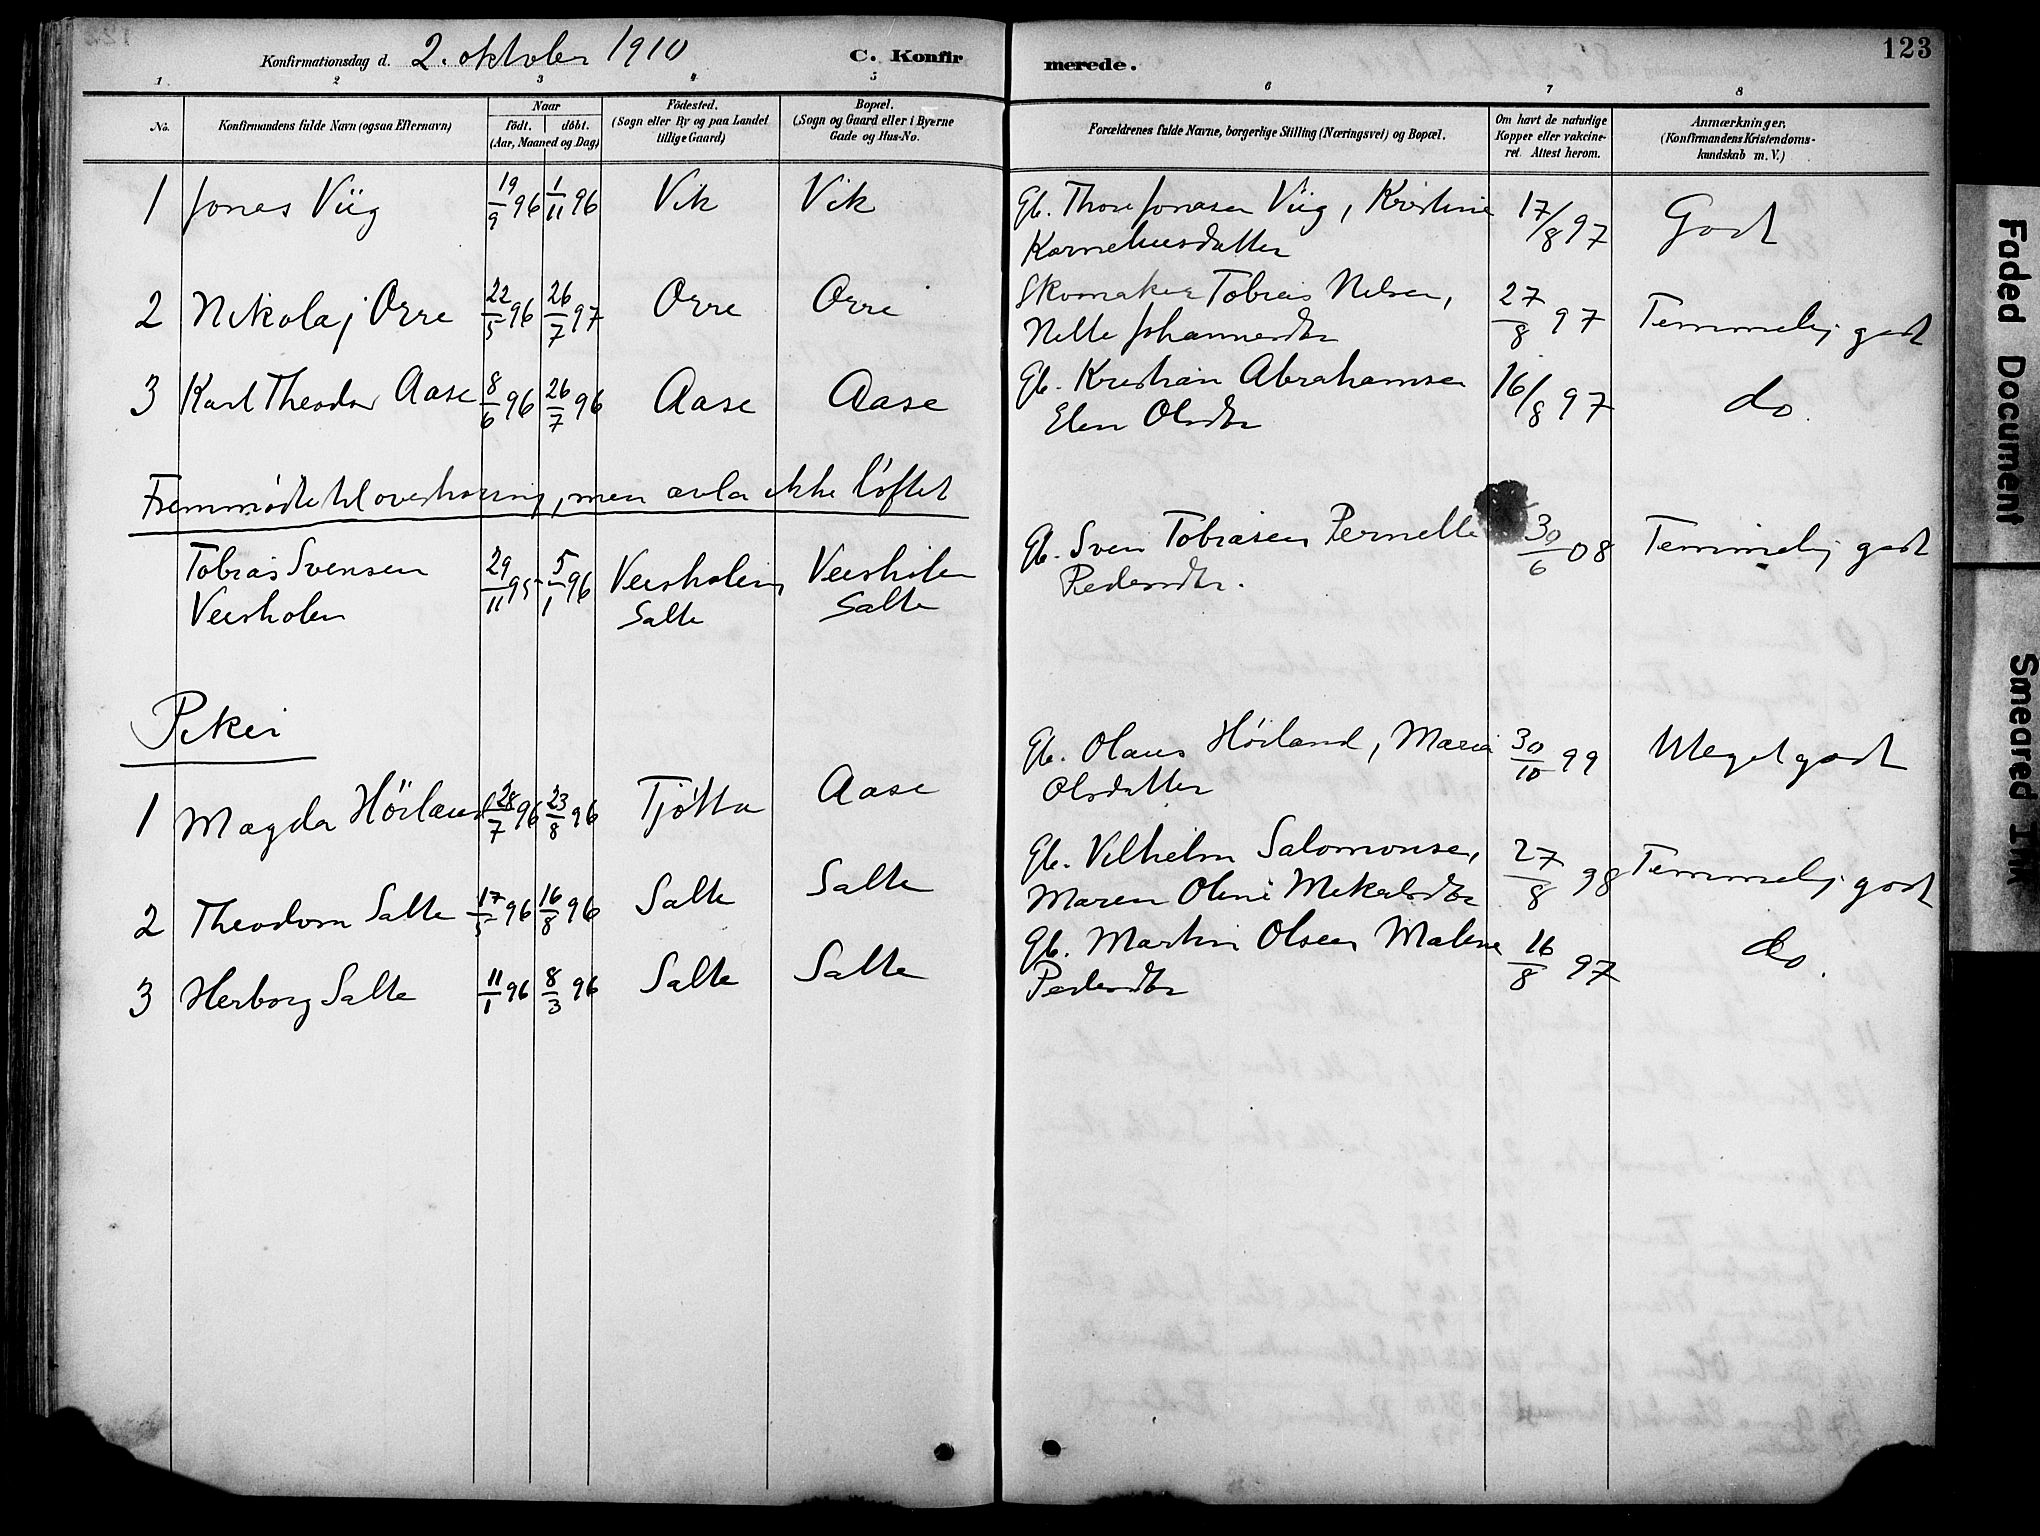 Konfirmationsdag d. 2. oktober 1910 C. Konfirmerede. 123
1 2 3 4 5 6 7 8
No. Konfirmandens fulde Navn (ogsaa Efternavn) Naar födt. döbt. (Aar, Maaned og Dag) Födested. (Sogn eller By og paa Landet tillige Gaard) Bopæl. (Sogn og Gaard eller i Byerne Gade og Hus-No. Forældrenes fulde Navne, borgerlige Stilling (Næringsvei) og Bopæl. Om havt de naturlige Kopper eller vakcineret. Attest herom. Anmærkninger, (Konfirmandens Kristendomskundskab m. V.)
1 Jonas Viig 19/9 96 1/11 96 Vik Vik Gb. Thore Jonasen Viig, Kristine 17/8 97 Godt
Korneliusdatter
2 Nikolaj Orre 22/5 96 26/7 97 Orre Orre Skomaker Tobias Nilsen, 27/8 97 Temmelig godt
Nille Johannesdtr
3 Karl Theodor Aase 8/6 96 26/7 96 Aase Aase Gb. Kristian Abrahamsen 16/8 97 do.
Elen Olsdtr
Fremmødte til overhøring, men avla ikke løftet
Tobias Svensen 29/11 95 5/1 96 Veisholen Veisholen Gb. Sven Tobiasen Pernelle 30/6 08 Temmelig godt
Veisholen Salte Salte Pedersdtr.
Piker
1 Magda Høiland 28/7 96 23/8 96 Tjøtta Aase Gb. Olaus Høiland, Maria 30/10 99 Meget godt
Olsdatter
2 Theodora Salte 17/5 96 16/8 96 Salte Salte Gb. Vilhelm Salomonsen, 27/8 98 Temmelig godt
Maren Oline Mikalsdtr
3 Herborg Salte 11/1 96 8/3 96 Salte Salte Gb. Martin Olsen Malene 16/8 97 do.
Pedersdtr
Faded Document
Smeared Ink